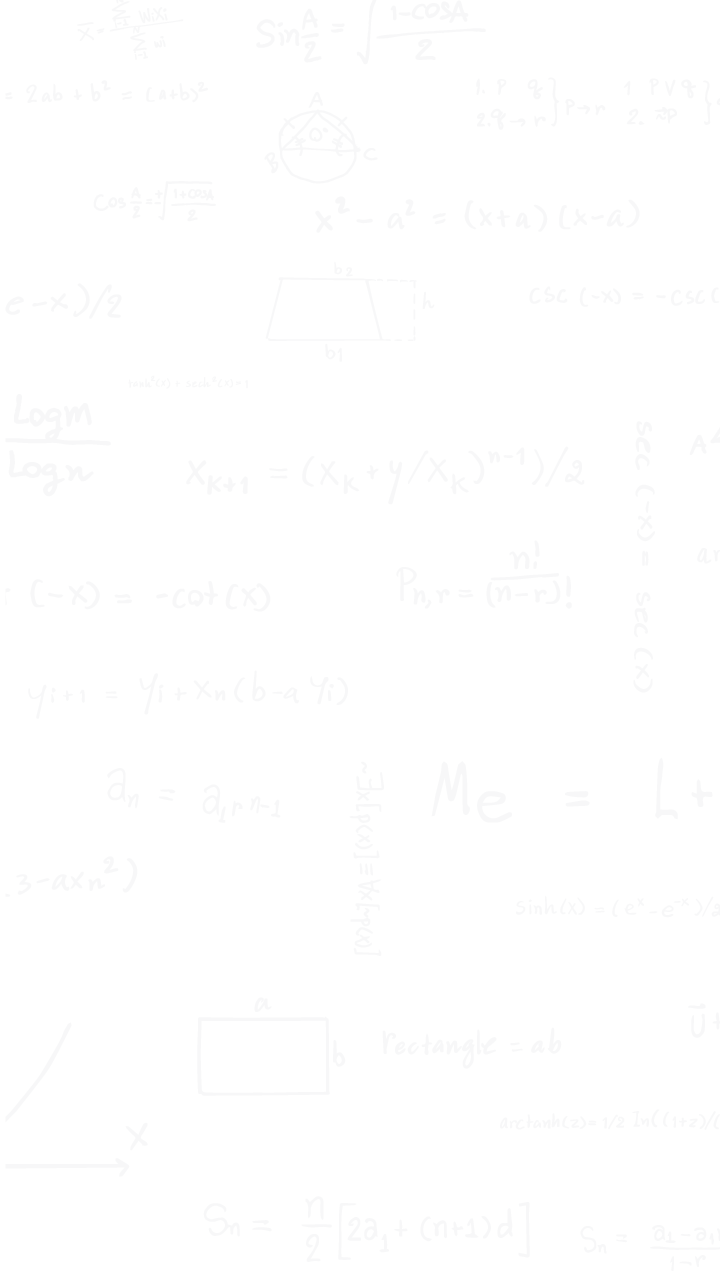 Sin A/2 = √(1-cosA)/2
= 2ab + b² = (a+b)²
1. P q
2. q → r
P → r
1 P V q
2. ~P
A
O
B C
Cos A/2 = ±√(1+cosA)/2
x² - a² = (x+a) (x-a)
b₂
e - x )/2
h
csc (-x) = - csc(
b₁
Logm
Logn
X_K+1 = (X_K + y/X_K)^n-1)/2
sec (-x) = sec (x)
A
ar
(-x) = -cot(x)
P_n,r = n!/(n-r)!
y_i+1 = y_i + x_n (b - a y_i)
a_n = a_1 r^n-1
~Ǝx[p(x)] ≡ ∀x[~p(x)]
Me = L +
3 - ax_n²)
sinh(x) = (e^x - e^-x)/2
a
b
rectangle = ab
U +
arctanh(z) = 1/2 ln((1+z)/(
x
S_n = n/2 [2a₁ + (n+1) d]
S_n = a₁ - a₁
1 - r